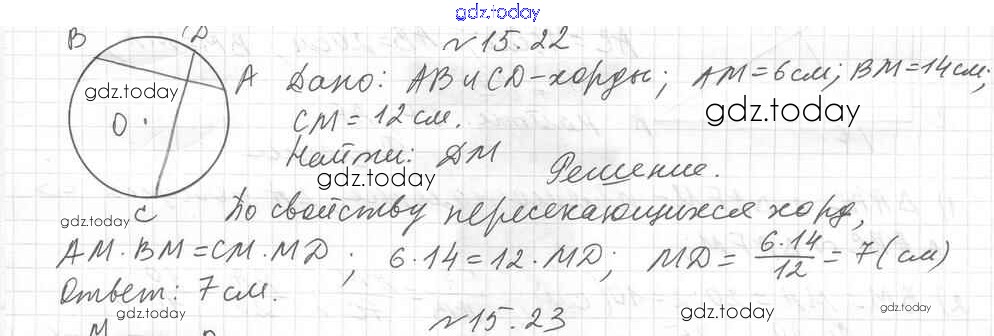 gdz.today
B D №15.22
A Дано: AB и CD-хорды; AM=6см; BM=14см;
gdz.today
O CM=12см.
gdz.today
Найти: DM
gdz.today
Решение.
gdz.today
C По свойству пересекающихся хорд,
AM·BM=CM·MD; 6·14=12·MD; MD=6·14/12=7(см)
Ответ: 7см.
gdz.today
gdz.today
№15.23